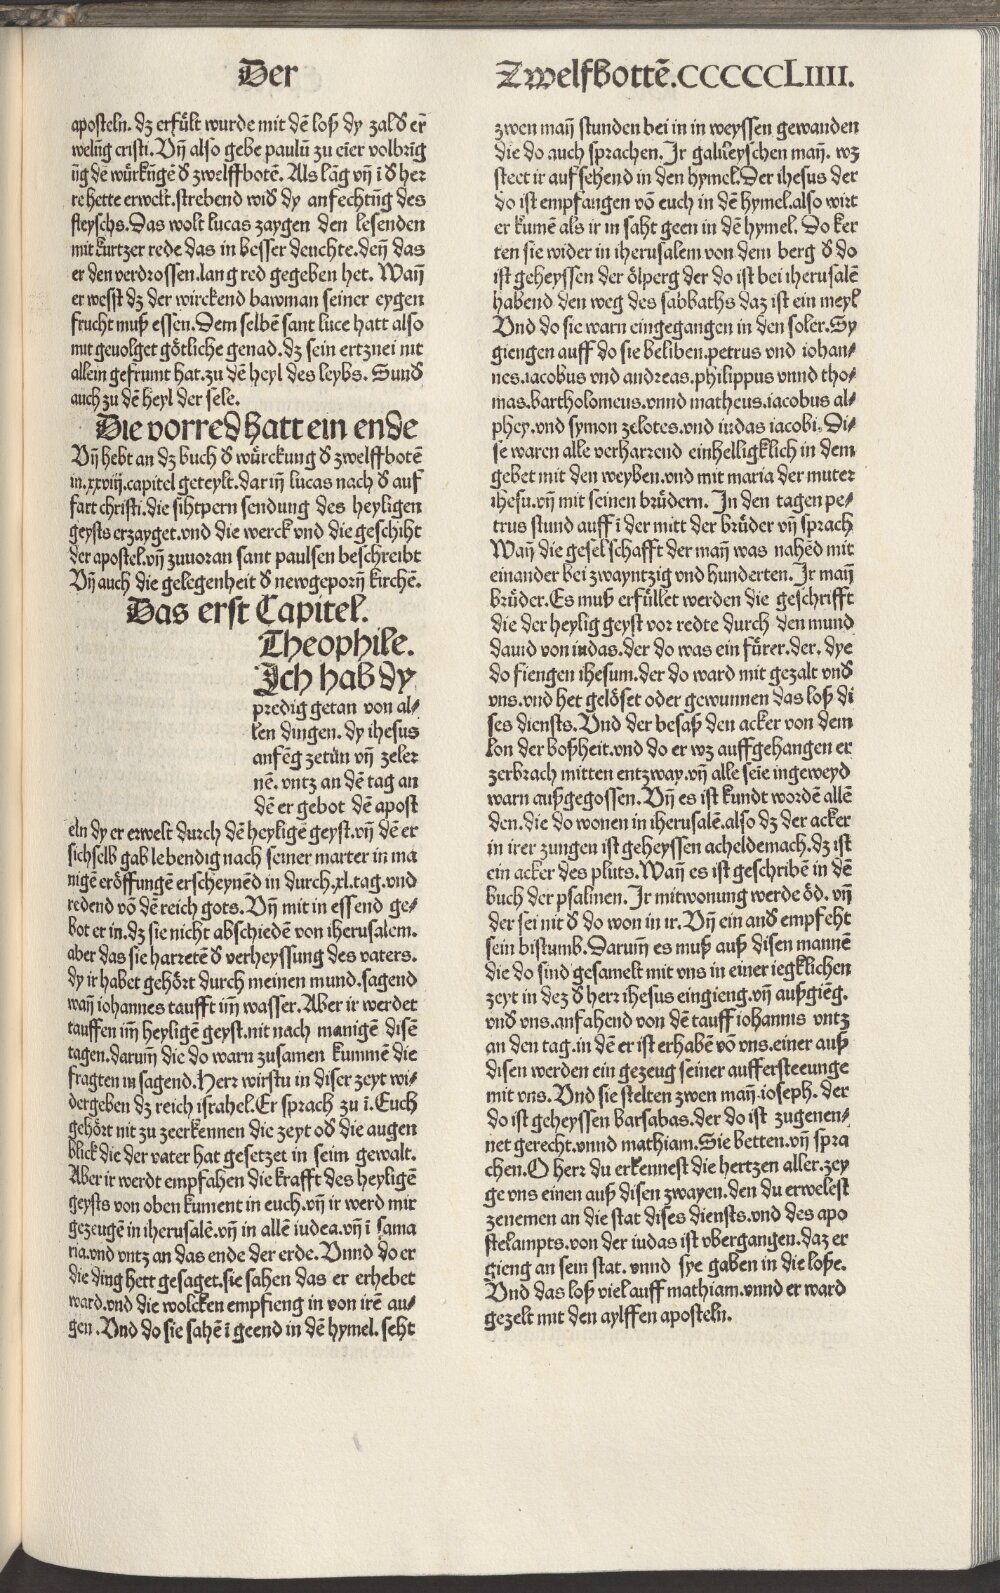 Der
Zwelfbottē.CCCCCLIIII.
aposteln. dz erfúlt wurde mit dē loß dy zal ð er̄
welūg cristi. Vn̄ also gebe paulū zu eīer volbrīg
ūg dē wúrkūgē ð zwelffbotē. Als lāg vn̄ ī ð her
re hette erwelt. strebend wið dy anfechtūg des
fleyschs. Das wolt lucas zaygen den lesenden
mit kurtzer rede das in besser deuchte. den̄ das
er den verdrossen. lang red gegeben het. Wan̄
er wesst dz der wirckend bawman seiner eygen
frucht muß essen. Dem selbē sant luce hatt also
mit gevolget götliche genad. dz sein ertznei nit
allein gefrumt hat. zu dē heyl des leybs. Sunð
auch zu dē heyl der sele.
Die vorred hatt ein ende
Vn̄ hebt an dz buch ð wúrckung ð zwelffbotē
in.xxviij.capitel geteylt. dar in̄ lucas nach ð auf
fart christi. die sihtpern sendung des heyligen
geysts erzayget. vnd die werck vnd die geschiht
der apostel. vn̄ zuuoran sant paulsen beschreibt
Vn̄ auch die gelegenheit ð newgeporn̄ kirchē.
Das erst Capitel.
Theophile.
Ich hab dy
predig getan von al-
len dingen. dy ihesus
anfēg zetūn vn̄ zeler
nē. vntz an dē tag an
dē er gebot dē apost
eln dy er erwelt durch dē heyligē geyst. vn̄ dē er
sichselb gab lebendig nach seiner marter in ma
nigē eröffungē erscheynēd in durch.xl.tag. vnd
redend vō dē reich gots. Vn̄ mit in essend ge-
bot er in. dz sie nicht abschiedē von iherusalem.
aber das sie harretē ð verheyssung des vaters.
dy ir habet gehört durch meinen mund. sagend
wan̄ iohannes taufft im̄ wasser. Aber ir werdet
tauffen im̄ heyligē geyst. nit nach manigē disē
tagen. darum̄ die do warn zusamen kummē die
fragten in sagend. Herr wirstu in diser zeyt wi-
dergeben dz reich israhel. Er sprach zu ī. Euch
gehört nit zu zeerkennen die zeyt oð die augen
blick die der vater hat gesetzet in seim gewalt.
Aber ir werdt empfahen die krafft des heyligē
geysts von oben kument in euch. vn̄ ir werd mir
gezeugē in iherusalē. vn̄ in allē iudea. vn̄ ī sama
ria. vnd vntz an das ende der erde. Vnnd do er
die ding hett gesaget. sie sahen das er erhebet
ward. vnd die wolcken empfieng in von irē au-
gen. Vnd do sie sahē ī geend in dē hymel. seht
zwen man̄ stunden bei in in weyssen gewanden
die do auch sprachen. Ir galileyschen man̄. wz
steet ir auf sehend in den hymel. Der ihesus der
do ist empfangen vō euch in dē hymel. also wirt
er kumē als ir in saht geen in dē hymel. Do ker
ten sie wider in iherusalem von dem berg ð do
ist geheyssen der ölperg der do ist bei iherusalē
habend den weg des sabbaths daz ist ein meyl
Vnd do sie warn eingegangen in den soler. Sy
giengen auff do sie beliben. petrus vnd iohan-
nes. iacobus vnd andreas. philippus vnnd tho-
mas. bartholomeus. vnnd matheus. iacobus al-
phey. vnd symon zelotes. vnd iudas iacobi. Di-
se waren alle verharrend einhelligklich in dem
gebet mit den weyben. vnd mit maria der muter
ihesu. vn̄ mit seinen brúdern. In den tagen pe-
trus stund auff ī der mitt der brúder vn̄ sprach
Wan̄ die geselschafft der man̄ was nahēd mit
einander bei zwayntzig vnd hunderten. Ir man̄
brúder. Es muß erfúllet werden die geschrifft
die der heylig geyst vor redte durch den mund
dauid von iudas. der do was ein fúrer. der. dye
do fiengen ihesum. der do ward mit gezalt vnð
vns. vnd het gelöset oder gewunnen das loß di
ses diensts. Vnd der besaß den acker von dem
lon der boßheit. vnd do er wz auffgehangen er
zerbrach mitten entzway. vn̄ alle seīe ingeweyd
warn außgegossen. Vn̄ es ist kundt wordē allē
den. die do wonen in iherusalē. also dz der acker
in irer zungen ist geheyssen acheldemach. dz ist
ein acker des pluts. Wan̄ es ist geschribē in dē
buch der psalmen. Ir mitwonung werde öd. vn̄
der sei nit ð do won in ir. Vn̄ ein anð empfeht
sein bistumb. Darum̄ es muß auß disen mannē
die do sind gesamelt mit vns in einer iegklichen
zeyt in dez ð herr ihesus eingieng. vn̄ außgiēg.
vnð vns. anfahend von dē tauff iohannis vntz
an den tag. in dē er ist erhabē vō vns. einer auß
disen werden ein gezeug seiner auffersteeunge
mit vns. Vnd sie stelten zwen man̄. ioseph. der
do ist geheyssen barsabas. der do ist zugenen-
net gerecht. vnnd mathiam. Sie betten. vn̄ spra
chen. O herr du erkennest die hertzen aller. zey
ge vns einen auß disen zwayen. den du erwelest
zenemen an die stat dises diensts. vnd des apo
stelampts. von der iudas ist vbergangen. daz er
gieng an sein stat. vnnd sye gaben in die loße.
Vnd das loß viel auff mathiam. vnnd er ward
gezelt mit den aylffen aposteln.